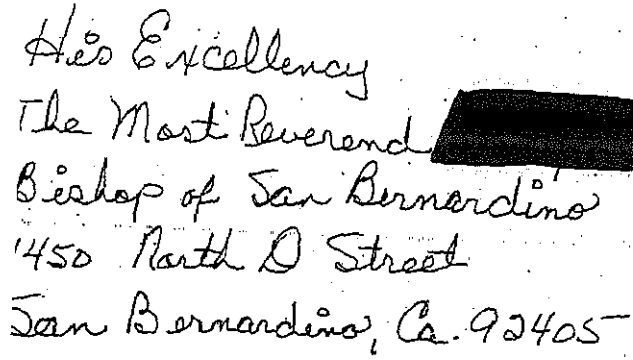 His Excellency
The Most Reverend
Bishop of San Bernardino
1450 North D Street
San Bernardino, Ca. 92405